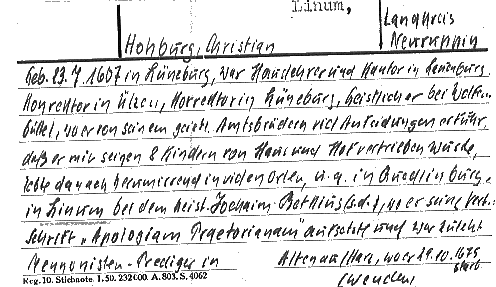 Linum,
Landkreis
Neuruppin
Hohburg, Christian
Geb. 23.7.1607 in Lüneburg, war Hauslehrer und Kantor in Lauenburg.
Konrektor in Ülzen, Korrektor in Lüneburg, Geistlicher bei Wolfen-
büttel, wo er von seinen geistl. Amtsbrüdern viel Anfeindungen erfuhr,
daß er mit seinen 8 Kindern von Haus und Hof vertrieben wurde,
lebte danach herumirrend in vielen Orten, u. a. in Quedlinburg
in Linum bei dem Geist. Joachim wo er seine
Schrift „Apologiam Praetorianam" aufsetzte und war zuletzt
Mennonisten-Prediger in Altona/Hbg, wo er 29.10.1675 starb.
(Wenden)
Reg.10. Stichnote. 1. 50. 232000. A. 803. S. 4062